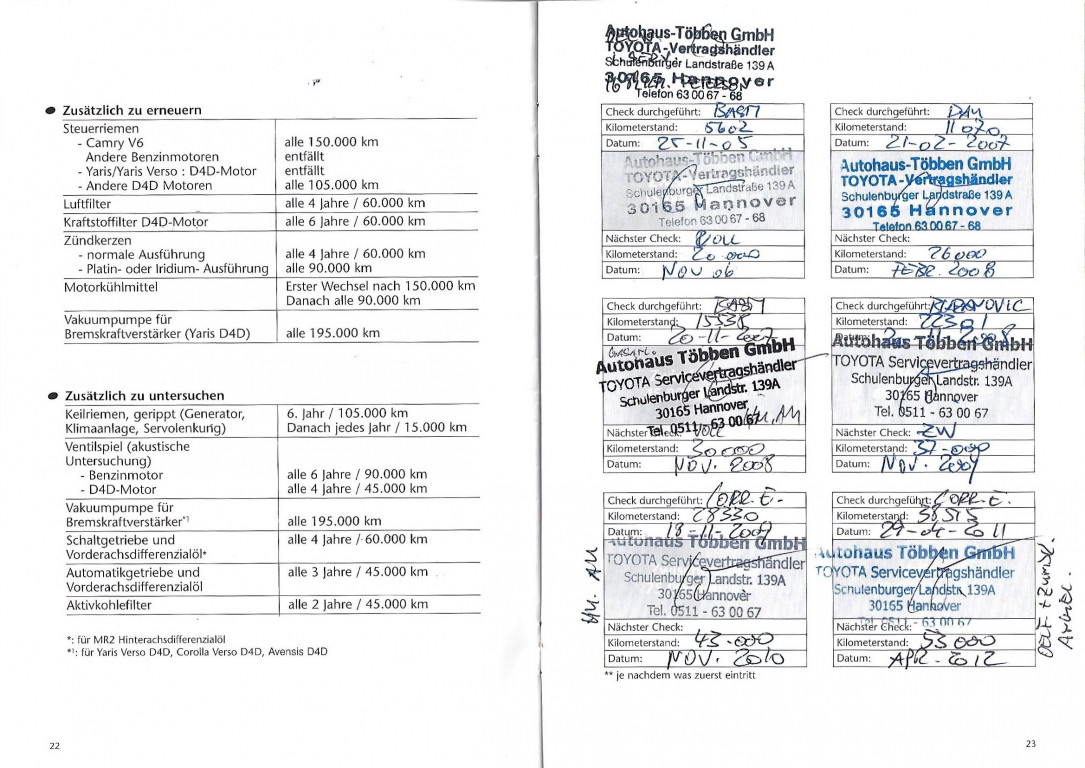 Zusätzlich zu erneuern
Steuerriemen
- Camry V6 alle 150.000 km
Andere Benzinmotoren entfällt
- Yaris/Yaris Verso : D4D-Motor entfällt
- Andere D4D Motoren alle 105.000 km
Luftfilter alle 4 Jahre / 60.000 km
Kraftstoffilter D4D-Motor alle 6 Jahre / 60.000 km
Zündkerzen
- normale Ausführung alle 4 Jahre / 60.000 km
- Platin- oder Iridium- Ausführung alle 90.000 km
Motorkühlmittel Erster Wechsel nach 150.000 km
Danach alle 90.000 km
Vakuumpumpe für
Bremskraftverstärker (Yaris D4D) alle 195.000 km
Zusätzlich zu untersuchen
Keilriemen, gerippt (Generator, 6. Jahr / 105.000 km
Klimaanlage, Servolenkung) Danach jedes Jahr / 15.000 km
Ventilspiel (akustische
Untersuchung)
- Benzinmotor alle 6 Jahre / 90.000 km
- D4D-Motor alle 4 Jahre / 45.000 km
Vakuumpumpe für
Bremskraftverstärker*¹ alle 195.000 km
Schaltgetriebe und alle 4 Jahre / 60.000 km
Vorderachsdifferenzialöl*
Automatikgetriebe und alle 3 Jahre / 45.000 km
Vorderachsdifferenzialöl
Aktivkohlefilter alle 2 Jahre / 45.000 km
*: für MR2 Hinterachsdifferenzialöl
*¹: für Yaris Verso D4D, Corolla Verso D4D, Avensis D4D
22
Autohaus-Többen GmbH
TOYOTA-Vertragshändler
Schulenburger Landstraße 139 A
30165 Hannover
Telefon 63 00 67 - 68
Check durchgeführt:
Kilometerstand: 5602
Datum: 25-11-05
Autohaus-Többen GmbH
TOYOTA-Vertragshändler
Schulenburger Landstraße 139 A
30165 Hannover
Telefon 63 00 67 - 68
Nächster Check: VOLL
Kilometerstand: 20.000
Datum: NOV 06
Check durchgeführt:
Kilometerstand: 11070
Datum: 21-02-2007
Autohaus-Többen GmbH
TOYOTA-Vertragshändler
Schulenburger Landstraße 139 A
30165 Hannover
Telefon 63 00 67 - 68
Nächster Check:
Kilometerstand: 26000
Datum: FEBR. 2008
Check durchgeführt:
Kilometerstand: 15538
Datum: 20-11-2007
Autohaus Többen GmbH
TOYOTA Servicevertragshändler
Schulenburger Landstr. 139A
30165 Hannover
Tel. 0511 - 63 00 67
Nächster Check: VOLL HU. AU
Kilometerstand: 30000
Datum: NOV. 2008
Check durchgeführt:
Kilometerstand: 22301
Datum:
Autohaus Többen GmbH
TOYOTA Servicevertragshändler
Schulenburger Landstr. 139A
30165 Hannover
Tel. 0511 - 63 00 67
Nächster Check: ZW
Kilometerstand: 37-000
Datum: NOV. 2009
Check durchgeführt: CORR. E.-
Kilometerstand: 28330
Datum: 18-11-2009
Autohaus Többen GmbH
TOYOTA Servicevertragshändler
Schulenburger Landstr. 139A
30165 Hannover
Tel. 0511 - 63 00 67
Nächster Check:
Kilometerstand: 43-000
Datum: NOV. 2010
HU. AU
Check durchgeführt: CORR. E.
Kilometerstand: 38515
Datum: 29-04-2011
Autohaus Többen GmbH
TOYOTA Servicevertragshändler
Schulenburger Landstr. 139A
30165 Hannover
Tel. 0511 - 63 00 67
Nächster Check:
Kilometerstand: 53000
Datum: APR-2012
** je nachdem was zuerst eintritt
23